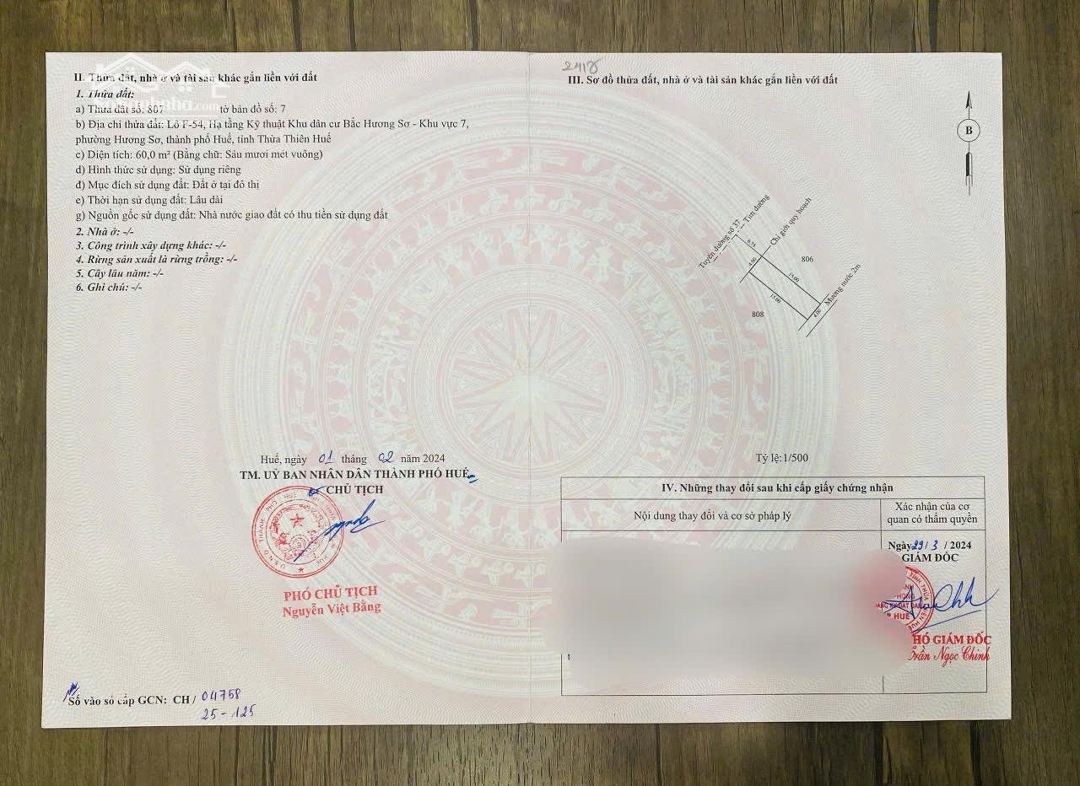 II. Thửa đất, nhà ở và tài sản khác gắn liền với đất
1. Thửa đất:
a) Thửa đất số: 807 tờ bản đồ số: 7
b) Địa chỉ thửa đất: Lô F-54, Hạ tầng Kỹ thuật Khu dân cư Bắc Hương Sơ - Khu vực 7,
phường Hương Sơ, thành phố Huế, tỉnh Thừa Thiên Huế
c) Diện tích: 60,0 m² (Bằng chữ: Sáu mươi mét vuông)
d) Hình thức sử dụng: Sử dụng riêng
đ) Mục đích sử dụng đất: Đất ở tại đô thị
e) Thời hạn sử dụng đất: Lâu dài
g) Nguồn gốc sử dụng đất: Nhà nước giao đất có thu tiền sử dụng đất
2. Nhà ở: -/-
3. Công trình xây dựng khác: -/-
4. Rừng sản xuất là rừng trồng: -/-
5. Cây lâu năm: -/-
6. Ghi chú: -/-
Huế, ngày 01 tháng 02 năm 2024
TM. UỶ BAN NHÂN DÂN THÀNH PHỐ HUẾ
CHỦ TỊCH
PHÓ CHỦ TỊCH
Nguyễn Việt Bằng
Số vào sổ cấp GCN: CH/ 04758
25-125
2418
III. Sơ đồ thửa đất, nhà ở và tài sản khác gắn liền với đất
B
Tuyến đường số 37
Tim đường
Chỉ giới quy hoạch
806
4.00
15.00
15.00
4.00
Mương nước 2m
808
Tỷ lệ:1/500
IV. Những thay đổi sau khi cấp giấy chứng nhận
Nội dung thay đổi và cơ sở pháp lý
Xác nhận của cơ
quan có thẩm quyền
Ngày 29/3/2024
GIÁM ĐỐC
HÓ GIÁM ĐỐC
Trần Ngọc Chinh